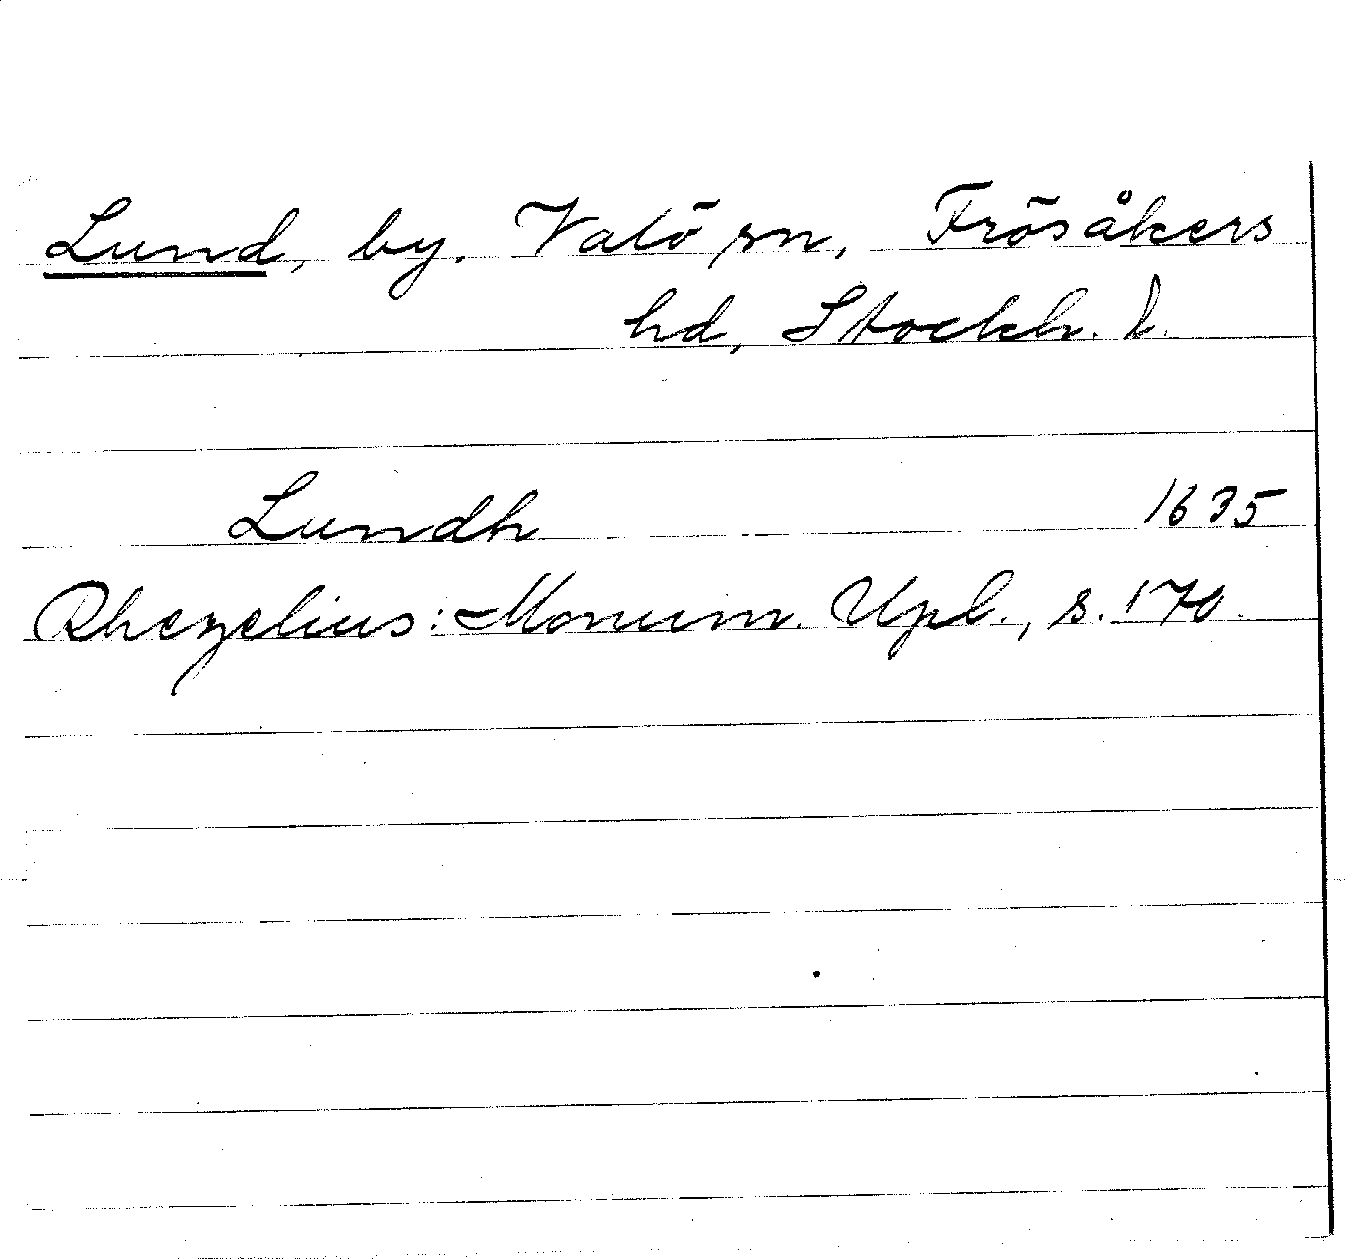 Lund, by. Valö sn, Frösåkers
hd, Stockh. l.
Lundh 1635
Rhezelius: Monum. Upl., s. 170.